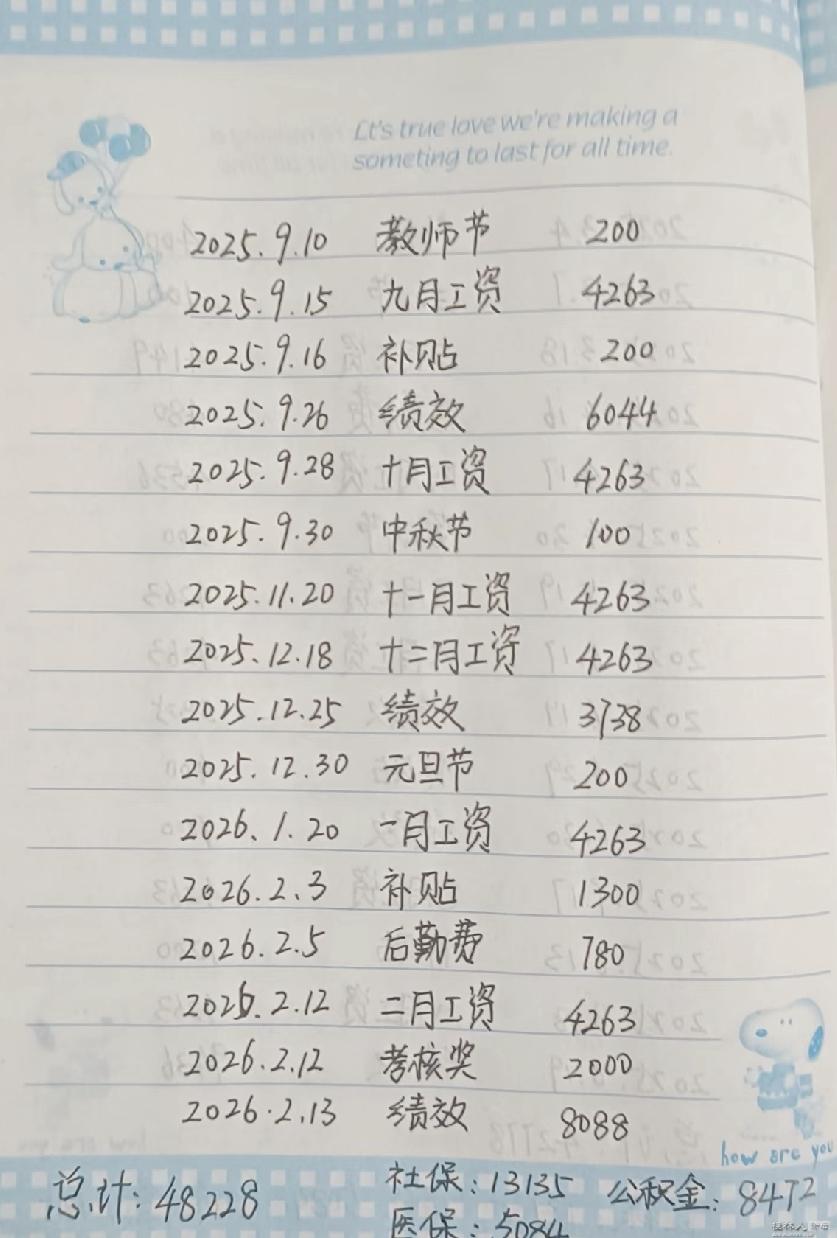 Lt's true love we're making a
someting to last for all time.
2025.9.10 教师节 200
2025.9.15 九月工资 4263
2025.9.16 补贴 200
2025.9.26 绩效 6044
2025.9.28 十月工资 4263
2025.9.30 中秋节 100
2025.11.20 十一月工资 4263
2025.12.18 十二月工资 4263
2025.12.25 绩效 3738
2025.12.30 元旦节 200
2026.1.20 一月工资 4263
2026.2.3 补贴 1300
2026.2.5 后勤费 780
2026.2.12 二月工资 4263
2026.2.12 考核奖 2000
2026.2.13 绩效 8088
how are you
总计:48228 社保:13135 公积金:8472
医保:5084
桂林人